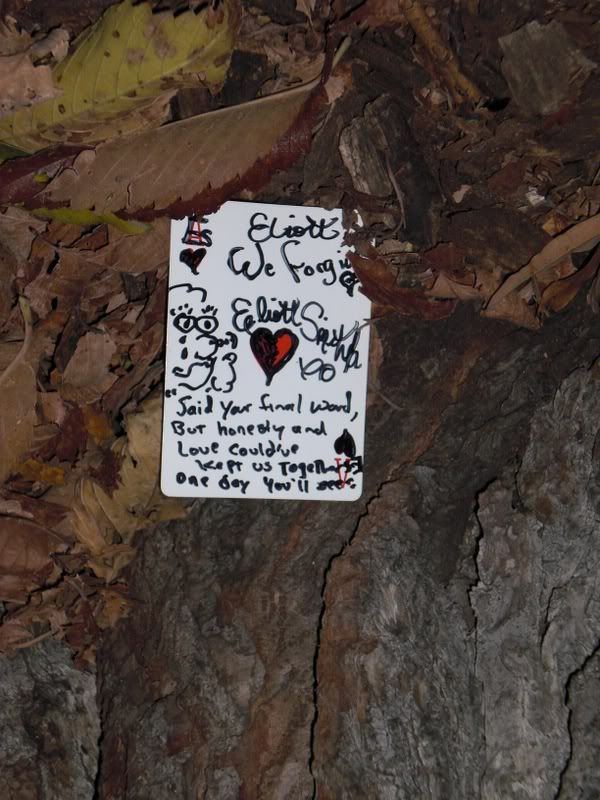 Eliott
We Forgi
Eliott Smith
XO
"Said your final word,
But honesty and
Love could've
kept us Together
One day you'll see